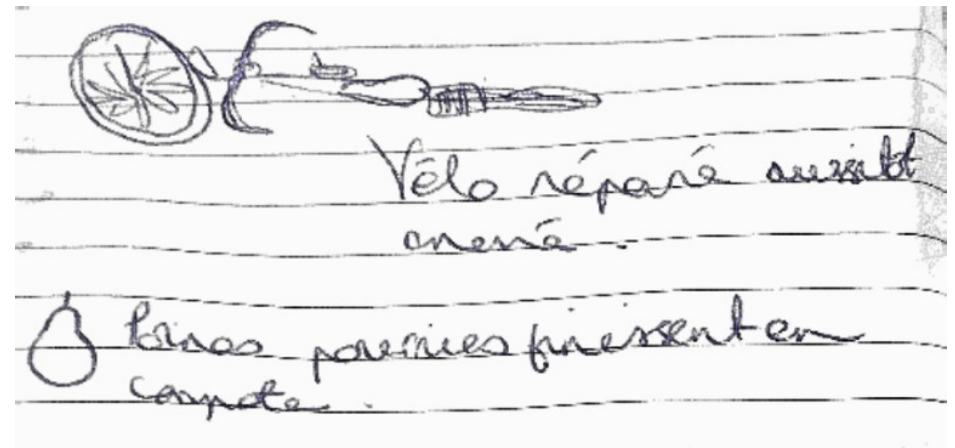 Vélo réparé aussitôt
crevé.
Poires pourries finissent en
compote.